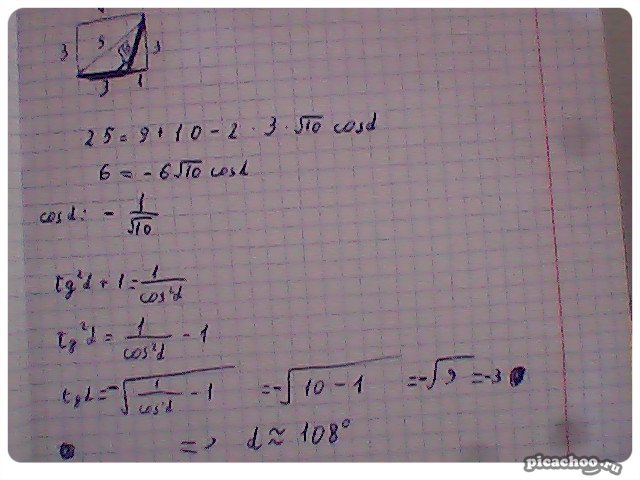 3 5 3
3 1
25 = 9 + 10 - 2 · 3 · √10 cosα
6 = - 6√10 cosα
cosα = - 1/√10
tg²α + 1 = 1/cos²α
tg²α = 1/cos²α - 1
tgα = -√(1/cos²α - 1) = -√(10 - 1) = -√9 = -3
=> α ≈ 108°
picachoo.ru